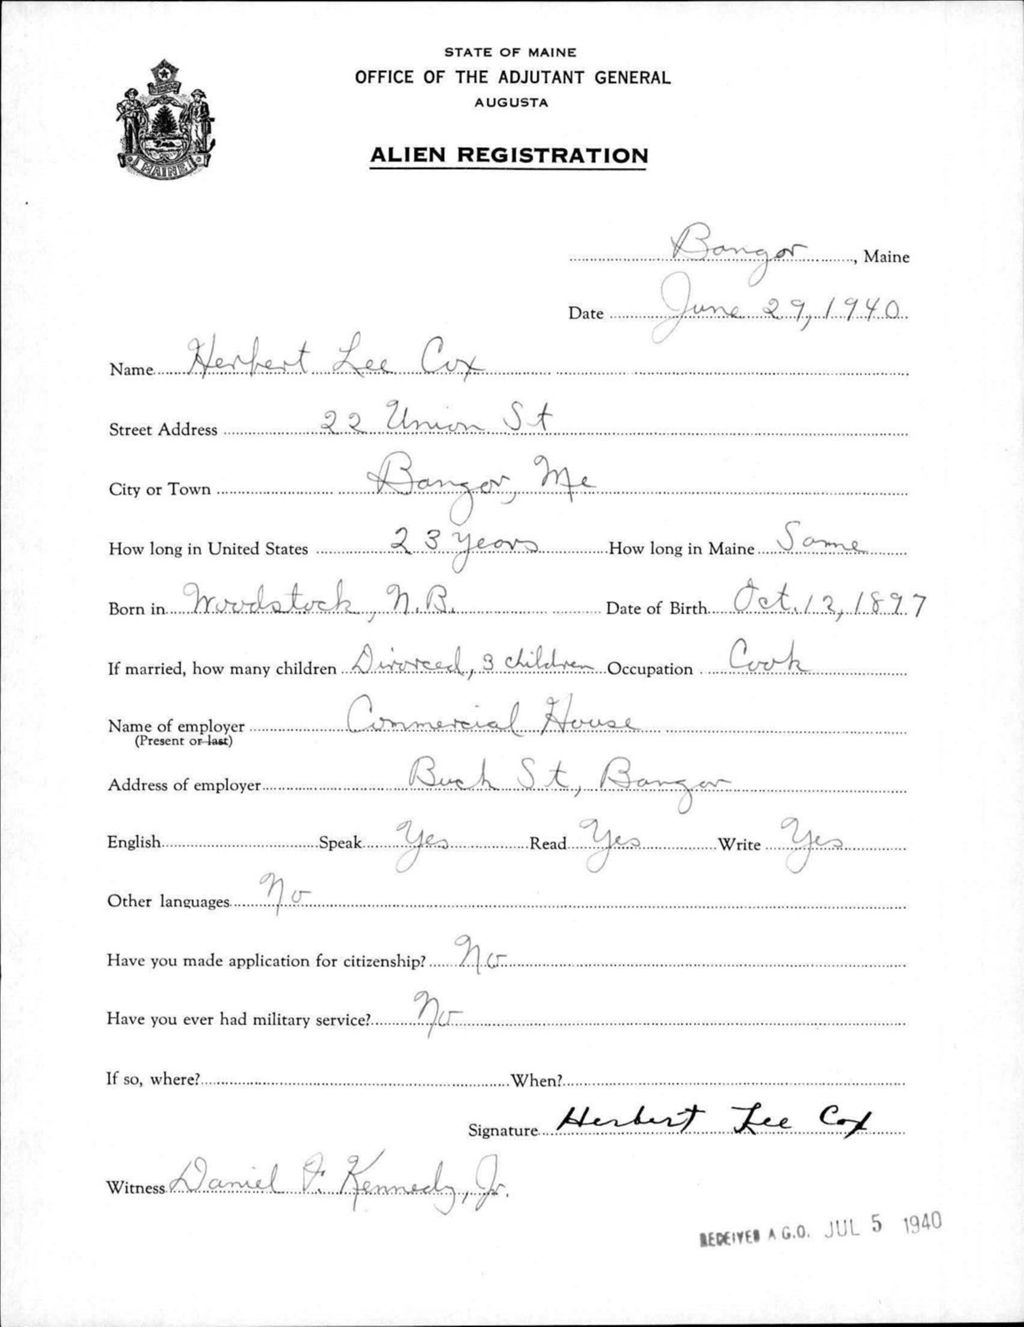 STATE OF MAINE
OFFICE OF THE ADJUTANT GENERAL
AUGUSTA
ALIEN REGISTRATION
MAINE
Bangor, Maine
Date June 29, 1940
Name Herbert Lee Cox
Street Address 22 Union St
City or Town Bangor, Me
How long in United States 23 years How long in Maine Same
Born in Woodstock, N.B. Date of Birth Oct. 12, 1897
If married, how many children Divorced, 3 children Occupation Cook
Name of employer Commercial House
(Present or last)
Address of employer Buck St, Bangor
English Speak Yes Read Yes Write Yes
Other languages No
Have you made application for citizenship? No
Have you ever had military service? No
If so, where? When?
Signature Herbert Lee Cox
Witness Daniel F. Kennedy, Jr.
RECEIVED A.G.O. JUL 5 1940